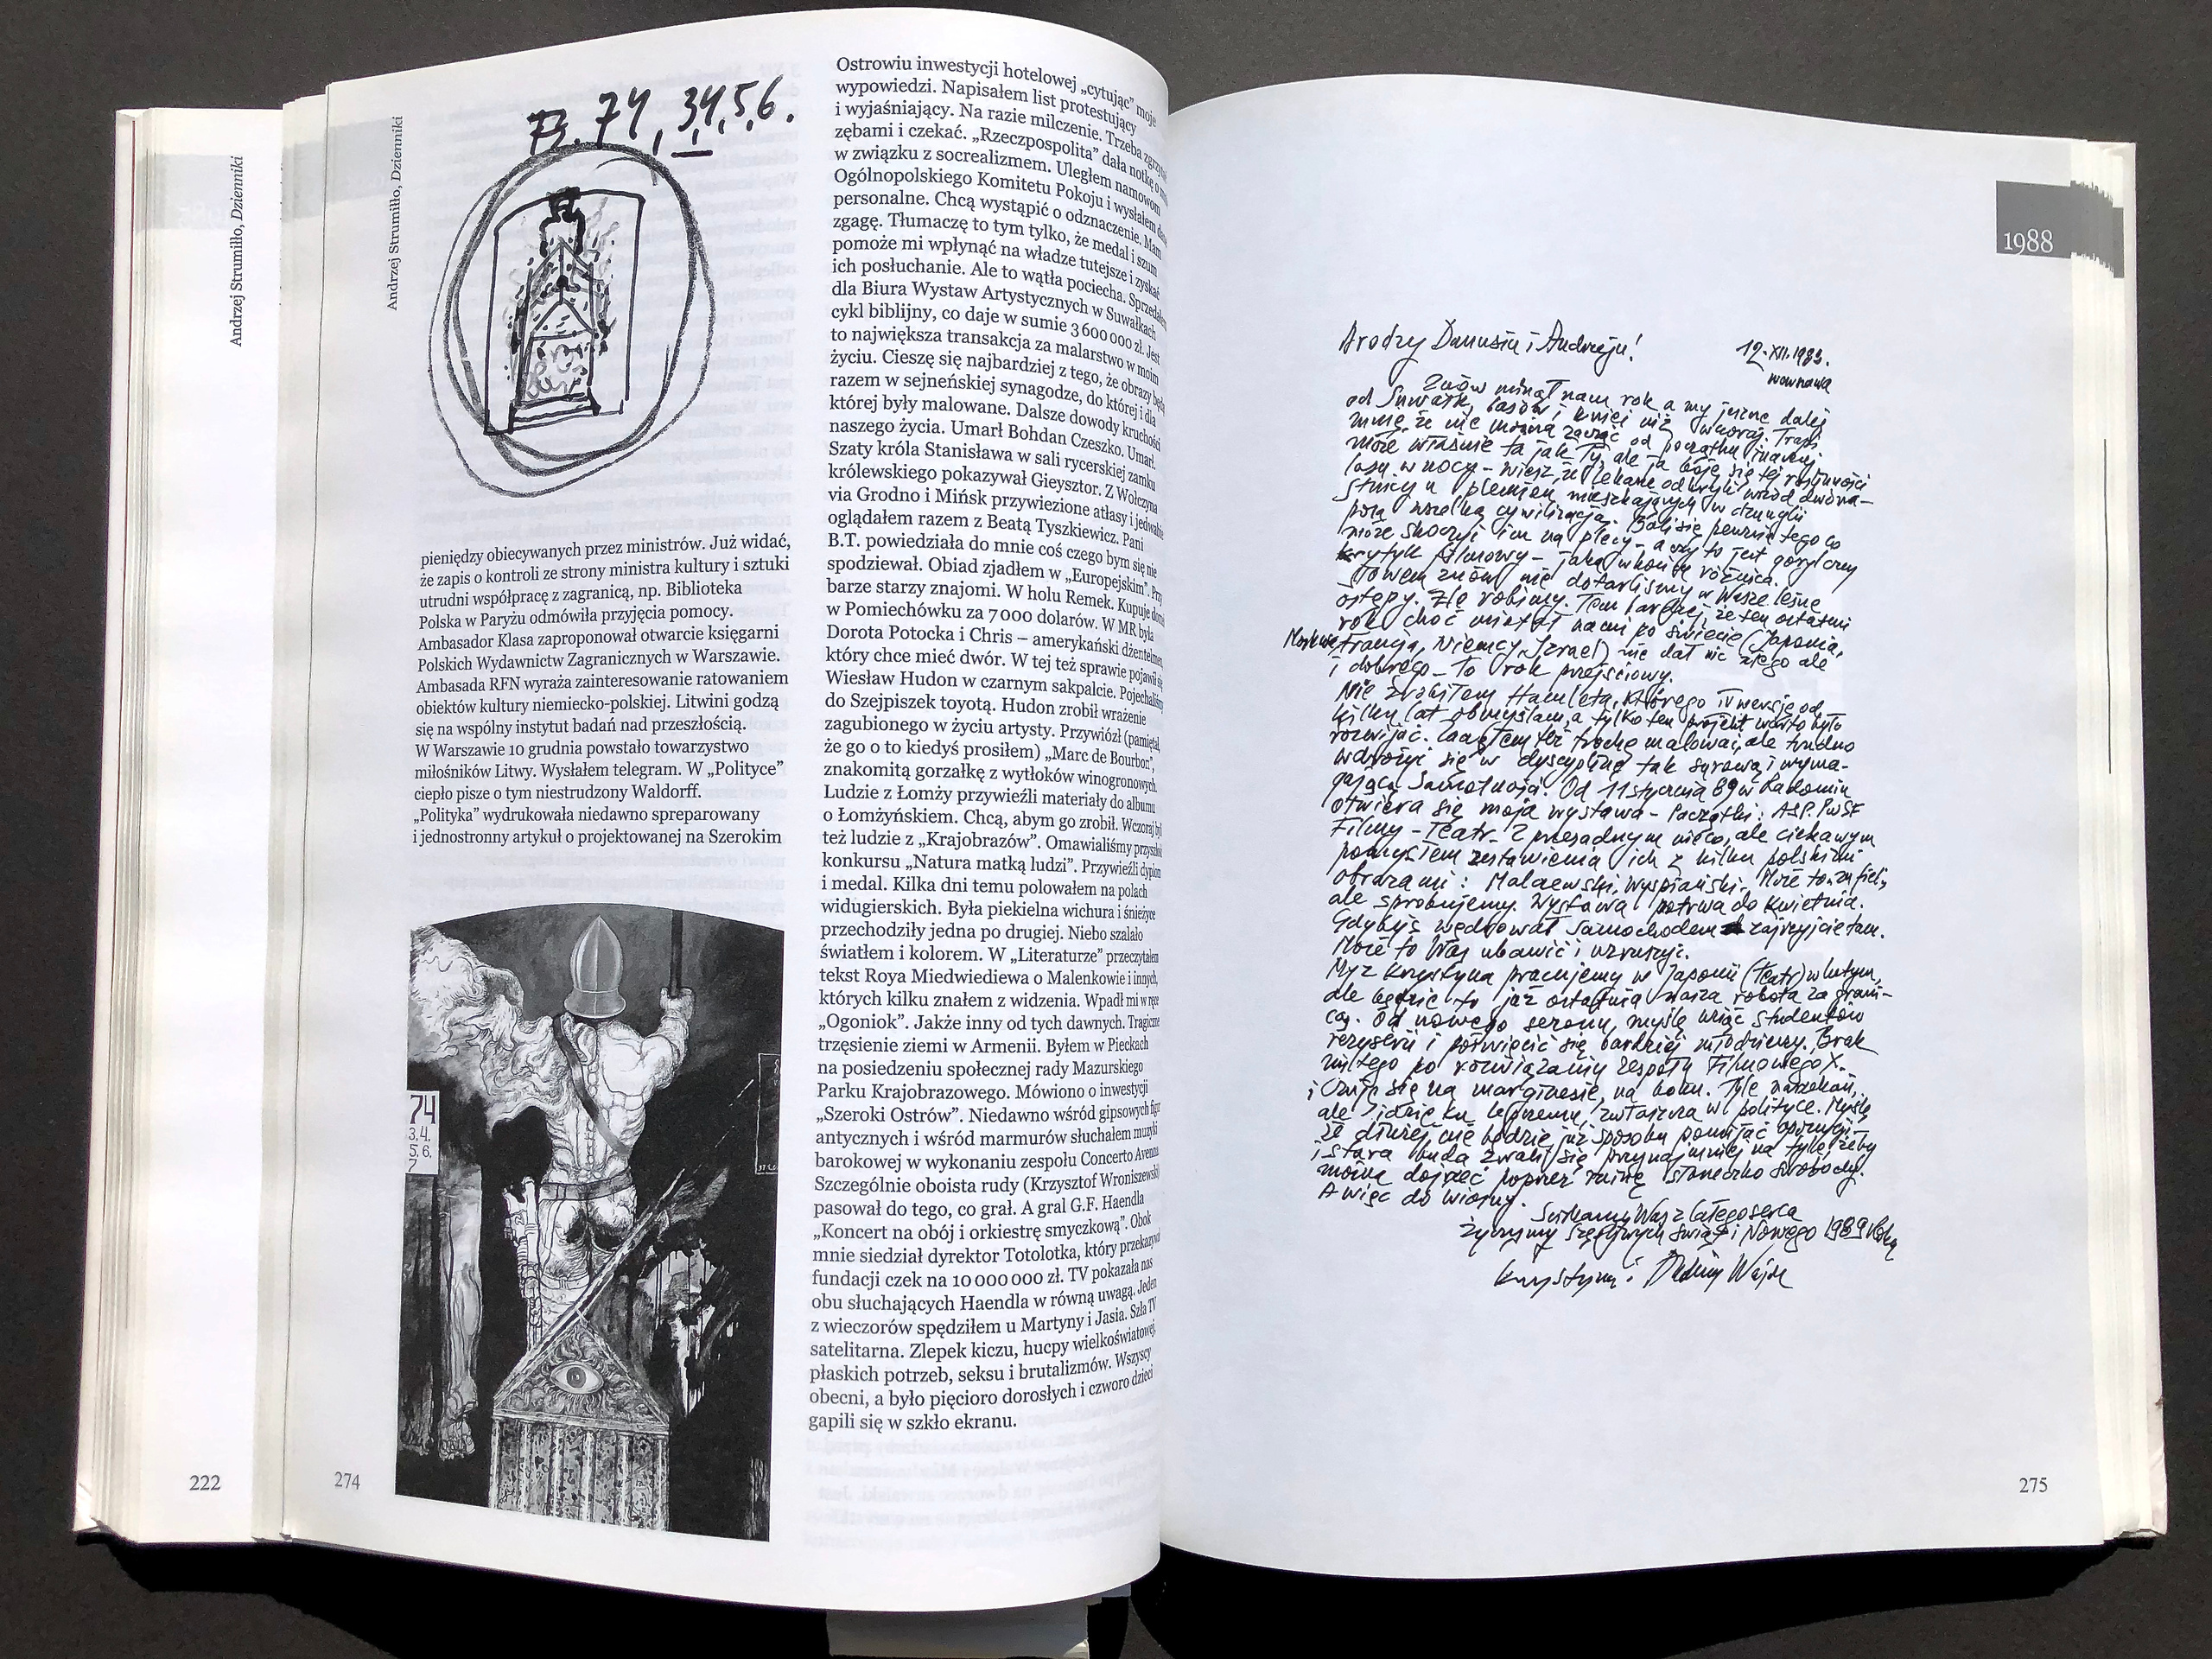 Andrzej Strumiłło, Dzienniki
222
Andrzej Strumiłło, Dzienniki
Ps. 74, 3,4,5,6.
pieniędzy obiecywanych przez ministrów. Już widać,
że zapis o kontroli ze strony ministra kultury i sztuki
utrudni współpracę z zagranicą, np. Biblioteka
Polska w Paryżu odmówiła przyjęcia pomocy.
Ambasador Klasa zaproponował otwarcie księgarni
Polskich Wydawnictw Zagranicznych w Warszawie.
Ambasada RFN wyraża zainteresowanie ratowaniem
obiektów kultury niemiecko-polskiej. Litwini godzą
się na wspólny instytut badań nad przeszłością.
W Warszawie 10 grudnia powstało towarzystwo
miłośników Litwy. Wysłałem telegram. W „Polityce”
ciepło pisze o tym niestrudzony Waldorff.
„Polityka” wydrukowała niedawno spreparowany
i jednostronny artykuł o projektowanej na Szerokim
74
3.4.
5.6.
7
274
Ostrowiu inwestycji hotelowej „cytując” moje
wypowiedzi. Napisałem list protestujący
i wyjaśniający. Na razie milczenie. Trzeba zgrzytać
zębami i czekać. „Rzeczpospolita” dała notkę o
w związku z socrealizmem. Uległem namowom
Ogólnopolskiego Komitetu Pokoju i wysłałem
personalne. Chcą wystąpić o odznaczenie. Mam
zgagę. Tłumaczę to tym tylko, że medal i szum
pomoże mi wpłynąć na władze tutejsze i zyskać
ich posłuchanie. Ale to wątła pociecha. Sprzedałem
dla Biura Wystaw Artystycznych w Suwałkach
cykl biblijny, co daje w sumie 3 600 000 zł. Jest
to największa transakcja za malarstwo w moim
życiu. Cieszę się najbardziej z tego, że obrazy będą
razem w sejneńskiej synagodze, do której i dla
której były malowane. Dalsze dowody kruchości
naszego życia. Umarł Bohdan Czeszko. Umarł.
Szaty króla Stanisława w sali rycerskiej zamku
królewskiego pokazywał Gieysztor. Z Wołczyna
via Grodno i Mińsk przywiezione atłasy i jedwabie
oglądałem razem z Beatą Tyszkiewicz. Pani
B.T. powiedziała do mnie coś czego bym się nie
spodziewał. Obiad zjadłem w „Europejskim”. Przy
barze starzy znajomi. W holu Remek. Kupuje domu
w Pomiechówku za 7 000 dolarów. W MR była
Dorota Potocka i Chris – amerykański dżentelmen,
który chce mieć dwór. W tej też sprawie pojawił się
Wiesław Hudon w czarnym sakpalcie. Pojechaliśmy
do Szejpiszek toyotą. Hudon zrobił wrażenie
zagubionego w życiu artysty. Przywiózł (pamiętał,
że go o to kiedyś prosiłem) „Marc de Bourbor”,
znakomitą gorzałkę z wytłoków winogronowych.
Ludzie z Łomży przywieźli materiały do albumu
o Łomżyńskiem. Chcą, abym go zrobił. Wczoraj byli
też ludzie z „Krajobrazów”. Omawialiśmy przyszłość
konkursu „Natura matką ludzi”. Przywieźli dyplom
i medal. Kilka dni temu polowałem na polach
widugierskich. Była piekielna wichura i śnieżyce
przechodziły jedna po drugiej. Niebo szalało
światłem i kolorem. W „Literaturze” przeczytałem
tekst Roya Miedwiediewa o Malenkowie i innych,
których kilku znałem z widzenia. Wpadł mi w ręce
„Ogoniok”. Jakże inny od tych dawnych. Tragiczne
trzęsienie ziemi w Armenii. Byłem w Pieckach
na posiedzeniu społecznej rady Mazurskiego
Parku Krajobrazowego. Mówiono o inwestycji
„Szeroki Ostrów”. Niedawno wśród gipsowych figur
antycznych i wśród marmurów słuchałem muzyki
barokowej w wykonaniu zespołu Concerto Avenna
Szczególnie oboista rudy (Krzysztof Wroniszewski)
pasował do tego, co grał. A grał G.F. Haendla
„Koncert na obój i orkiestrę smyczkową”. Obok
mnie siedział dyrektor Totolotka, który przekazywał
fundacji czek na 10 000 000 zł. TV pokazała nas
obu słuchających Haendla w równą uwagą. Jeden
z wieczorów spędziłem u Martyny i Jasia. Szła TV
satelitarna. Zlepek kiczu, hucpy wielkoświatowej,
płaskich potrzeb, seksu i brutalizmów. Wszyscy
obecni, a było pięcioro dorosłych i czworo dzieci
gapili się w szkło ekranu.
1988
Drodzy Danusiu i Andrzeju!
12.XII.1988.
Warszawa
Znów minął nam rok a my jeszcze dalej
od Suwałk, lasów i kniei niż wczoraj. Trapi
mnie, że nie można zacząć od początku inaczej
może właśnie ta jak Ty, ale ja boję się tej roślinności
lasu w nocy – wiesz, że lekarze odkryli wśród dwóna-
stnicy u plemion mieszkających w dżungli
poza wszelką cywilizacją. Boli się pewnie tego co
może skoczyć im na plecy – a czy to jest goryl czy
krytyk filmowy – jaka w końcu różnica.
Słowem znów nie dotarliśmy w Wasze leśne
ostępy. Źle robimy. Tem bardziej, że ten ostatni
rok choć miotał nami po świecie (Japonia,
Moskwa, Francja, Niemcy, Izrael) nie dał nic złego ale
i dobrego – to rok przejściowy.
Nie zrobiłem Hamleta, którego IV wersję od
kilku lat obmyślam, a tylko ten projekt warto było
rozwijać. Zacząłem też trochę malować, ale trudno
wdrożyć się w dyscyplinę tak surową i wyma-
gającą samotności. Od 11 stycznia 89 w Radomiu
otwiera się moja wystawa – Początki: ASP. PWSF
Filmy – Teatr. Z przesadnym nieco, ale ciekawym
pomysłem zestawienia ich z kilku polskimi
obrazami: Malczewski, Wyspiański. Może to
ale spróbujemy. Wystawa potrwa do kwietnia.
Gdybyś wędrował samochodem zajrzyjcie tam.
Może to Was ubawić i wzruszyć.
My z Krystyną pracujemy w Japonii (teatr) w lutym,
ale będzie to już ostatnia nasza robota za grani-
cą. Od nowego sezonu, myślę wziąć studentów
reżyserii i poświęcić się bardziej młodzieży. Brak
mi tego po rozwiązaniu Zespołu Filmowego X.
i czuję się na marginesie, na boku. Tyle narzekań,
ale idzie ku lepszemu, zwłaszcza w polityce. Myślę
że dłużej nie będzie już sposobu pomijać opozycji
i stara buda zwali się przynajmniej na tyle, żeby
można dojrzeć poprzez ruinę słoneczko swobody.
A więc do wiosny.
Ściskamy Was z całego serca
życzymy szczęśliwych świąt i Nowego 1989 Roku
Krystyna i Andrzej Wajda
275